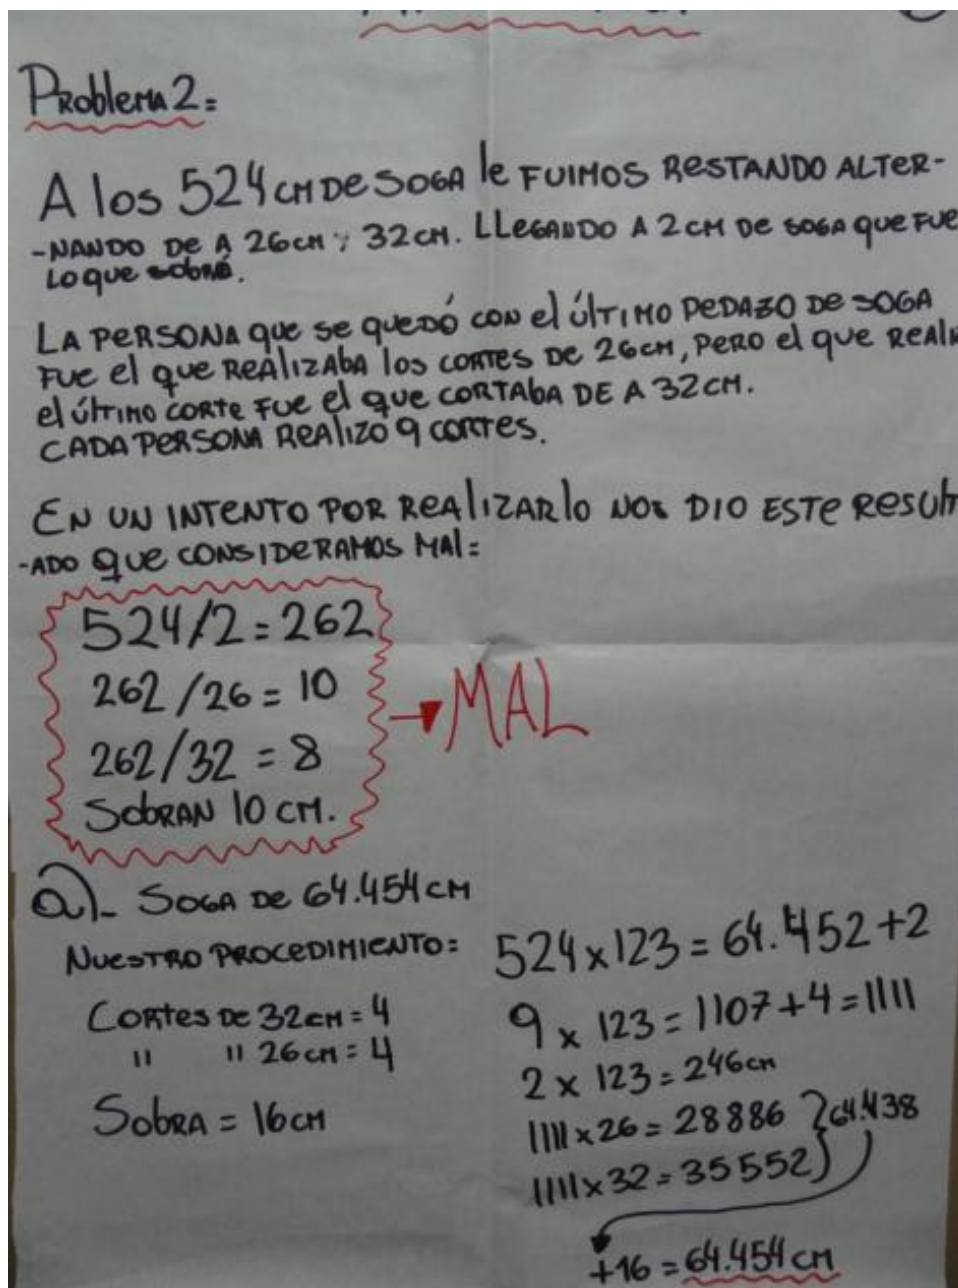 Problema 2:
A los 524 cm de soga le fuimos restando alter-
-nando de a 26cm y 32cm. Llegando a 2cm de soga que fue
lo que sobró.
La persona que se quedó con el último pedazo de soga
fue el que realizaba los cortes de 26cm, pero el que
el último corte fue el que cortaba de a 32cm.
Cada persona realizo 9 cortes.
En un intento por realizarlo nos dio este result
-ado que consideramos mal:
524/2 = 262
262/26 = 10
262/32 = 8
Sobran 10 cm.
→ MAL
a)- Soga de 64.454 cm
Nuestro procedimiento:
Cortes de 32cm = 4
" " 26cm = 4
Sobra = 16cm
524 x 123 = 64.452 + 2
9 x 123 = 1107 + 4 = 1111
2 x 123 = 246cm
1111 x 26 = 28886 } 64.438
1111 x 32 = 35552
+16 = 64.454 cm